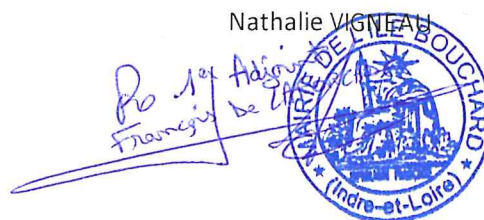 Nathalie VIGNEAU
Po 1er Adjoint
François De LA
MAIRIE DE L'ILE BOUCHARD
★ (Indre-et-Loire) ★